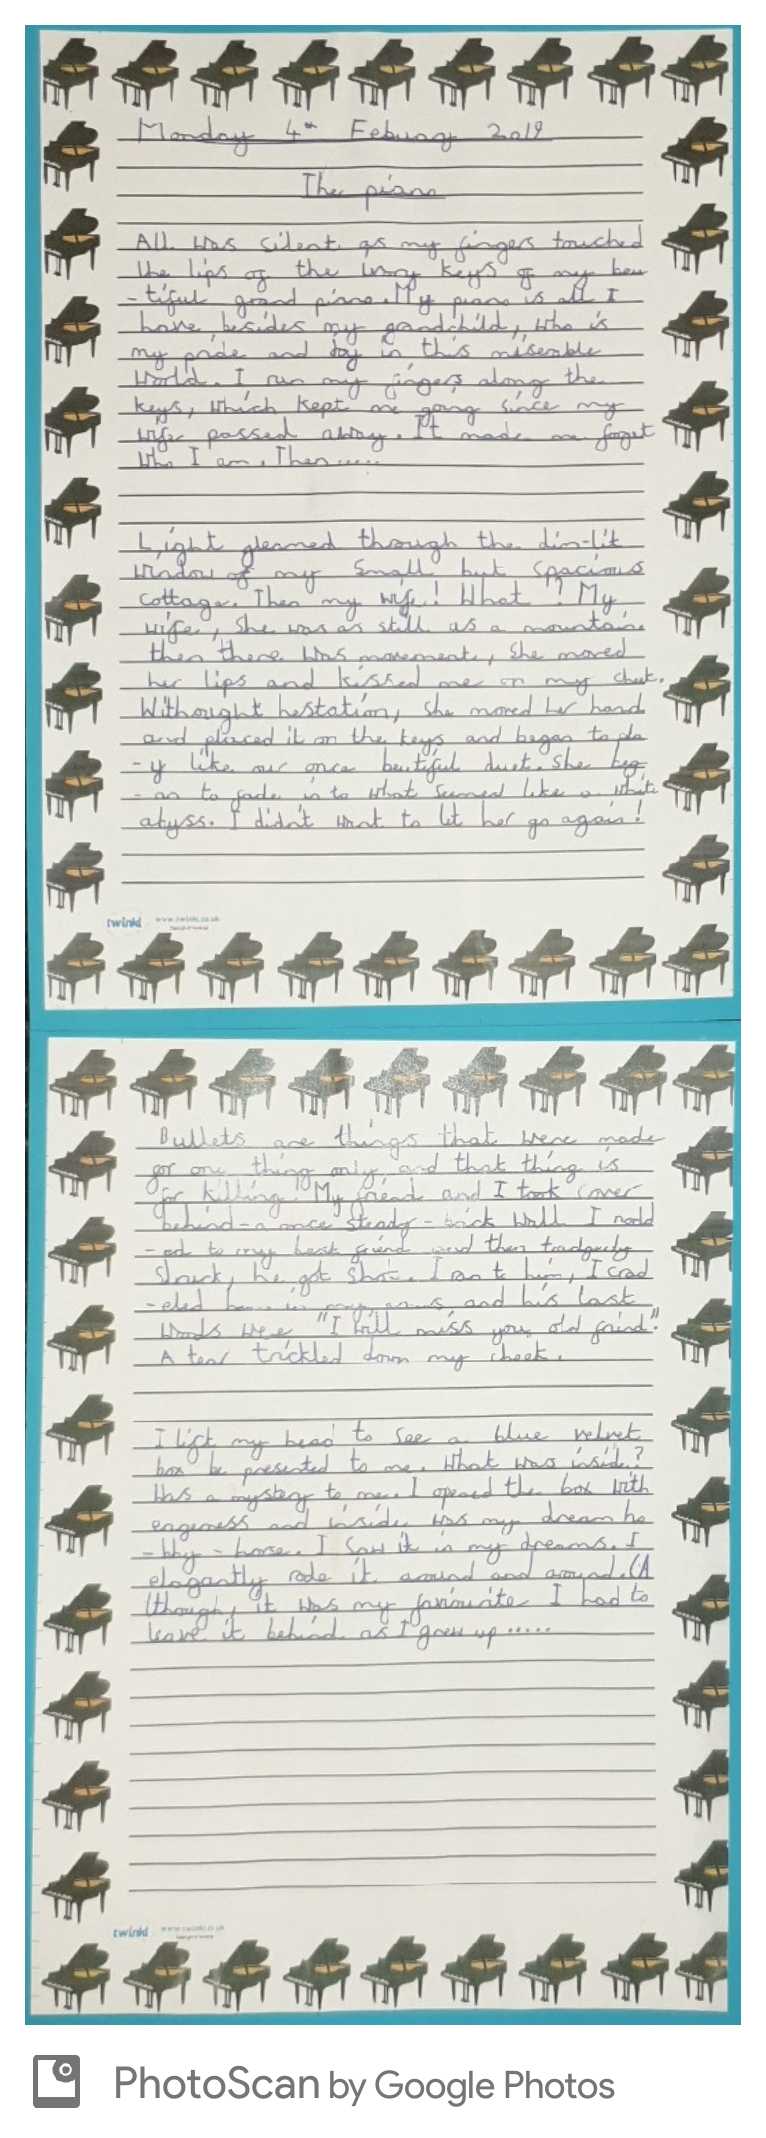 Monday 4th Febuary 2019
The piano
All was silent as my fingers touched
the lips of the ivory keys of my beu
-tiful grand piano. My piano is all I
have besides my grandchild, who is
my pride and joy in this miserable
world. I run my fingers along the
keys, which kept me going since my
wife passed away. It made me forget
who I am. Then.....
Light gleamed through the dim-lit
window of my small but spacious
cottage. Then my wife! What!? My
wife, she was as still as a mountain
then there was movement, she moved
her lips and kissed me on my cheek.
Withought hestation, she moved her hand
and placed it on the keys and began to pla
-y like our once beutiful duet. She beg
-an to fade in to what seemed like a white
abyss. I didn't want to let her go again!
twinkl www.twinkl.co.uk
Bullets are things that were made
for one thing only and that thing is
for killing. My friend and I took cover
behind-a once steady-brick wall I nodd
-ed to my best friend and then tradgedy
struck, he got shot. I ran to him, I crad
-eled him in my arms and his last
words were "I will miss you, old freind".
A tear trickled down my cheek.
I lift my head to see a blue velvet
box be presented to me. What was inside?
Was a mystery to me. I opened the box with
eagerness and inside was my dream ho
-bby-horse. I saw it in my dreams. I
elagantly rode it around and around. (A
lthough, it was my faviourite I had to
leave it behind as I grew up.....
twinkl www.twinkl.co.uk
PhotoScan by Google Photos